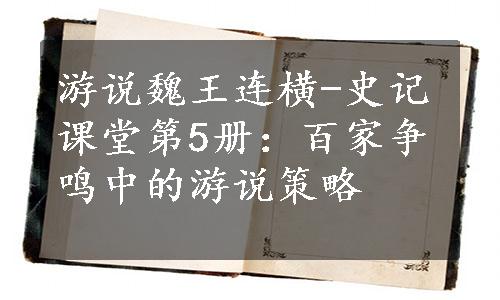 游说魏王连横-史记
课堂第5册：百家争
鸣中的游说策略